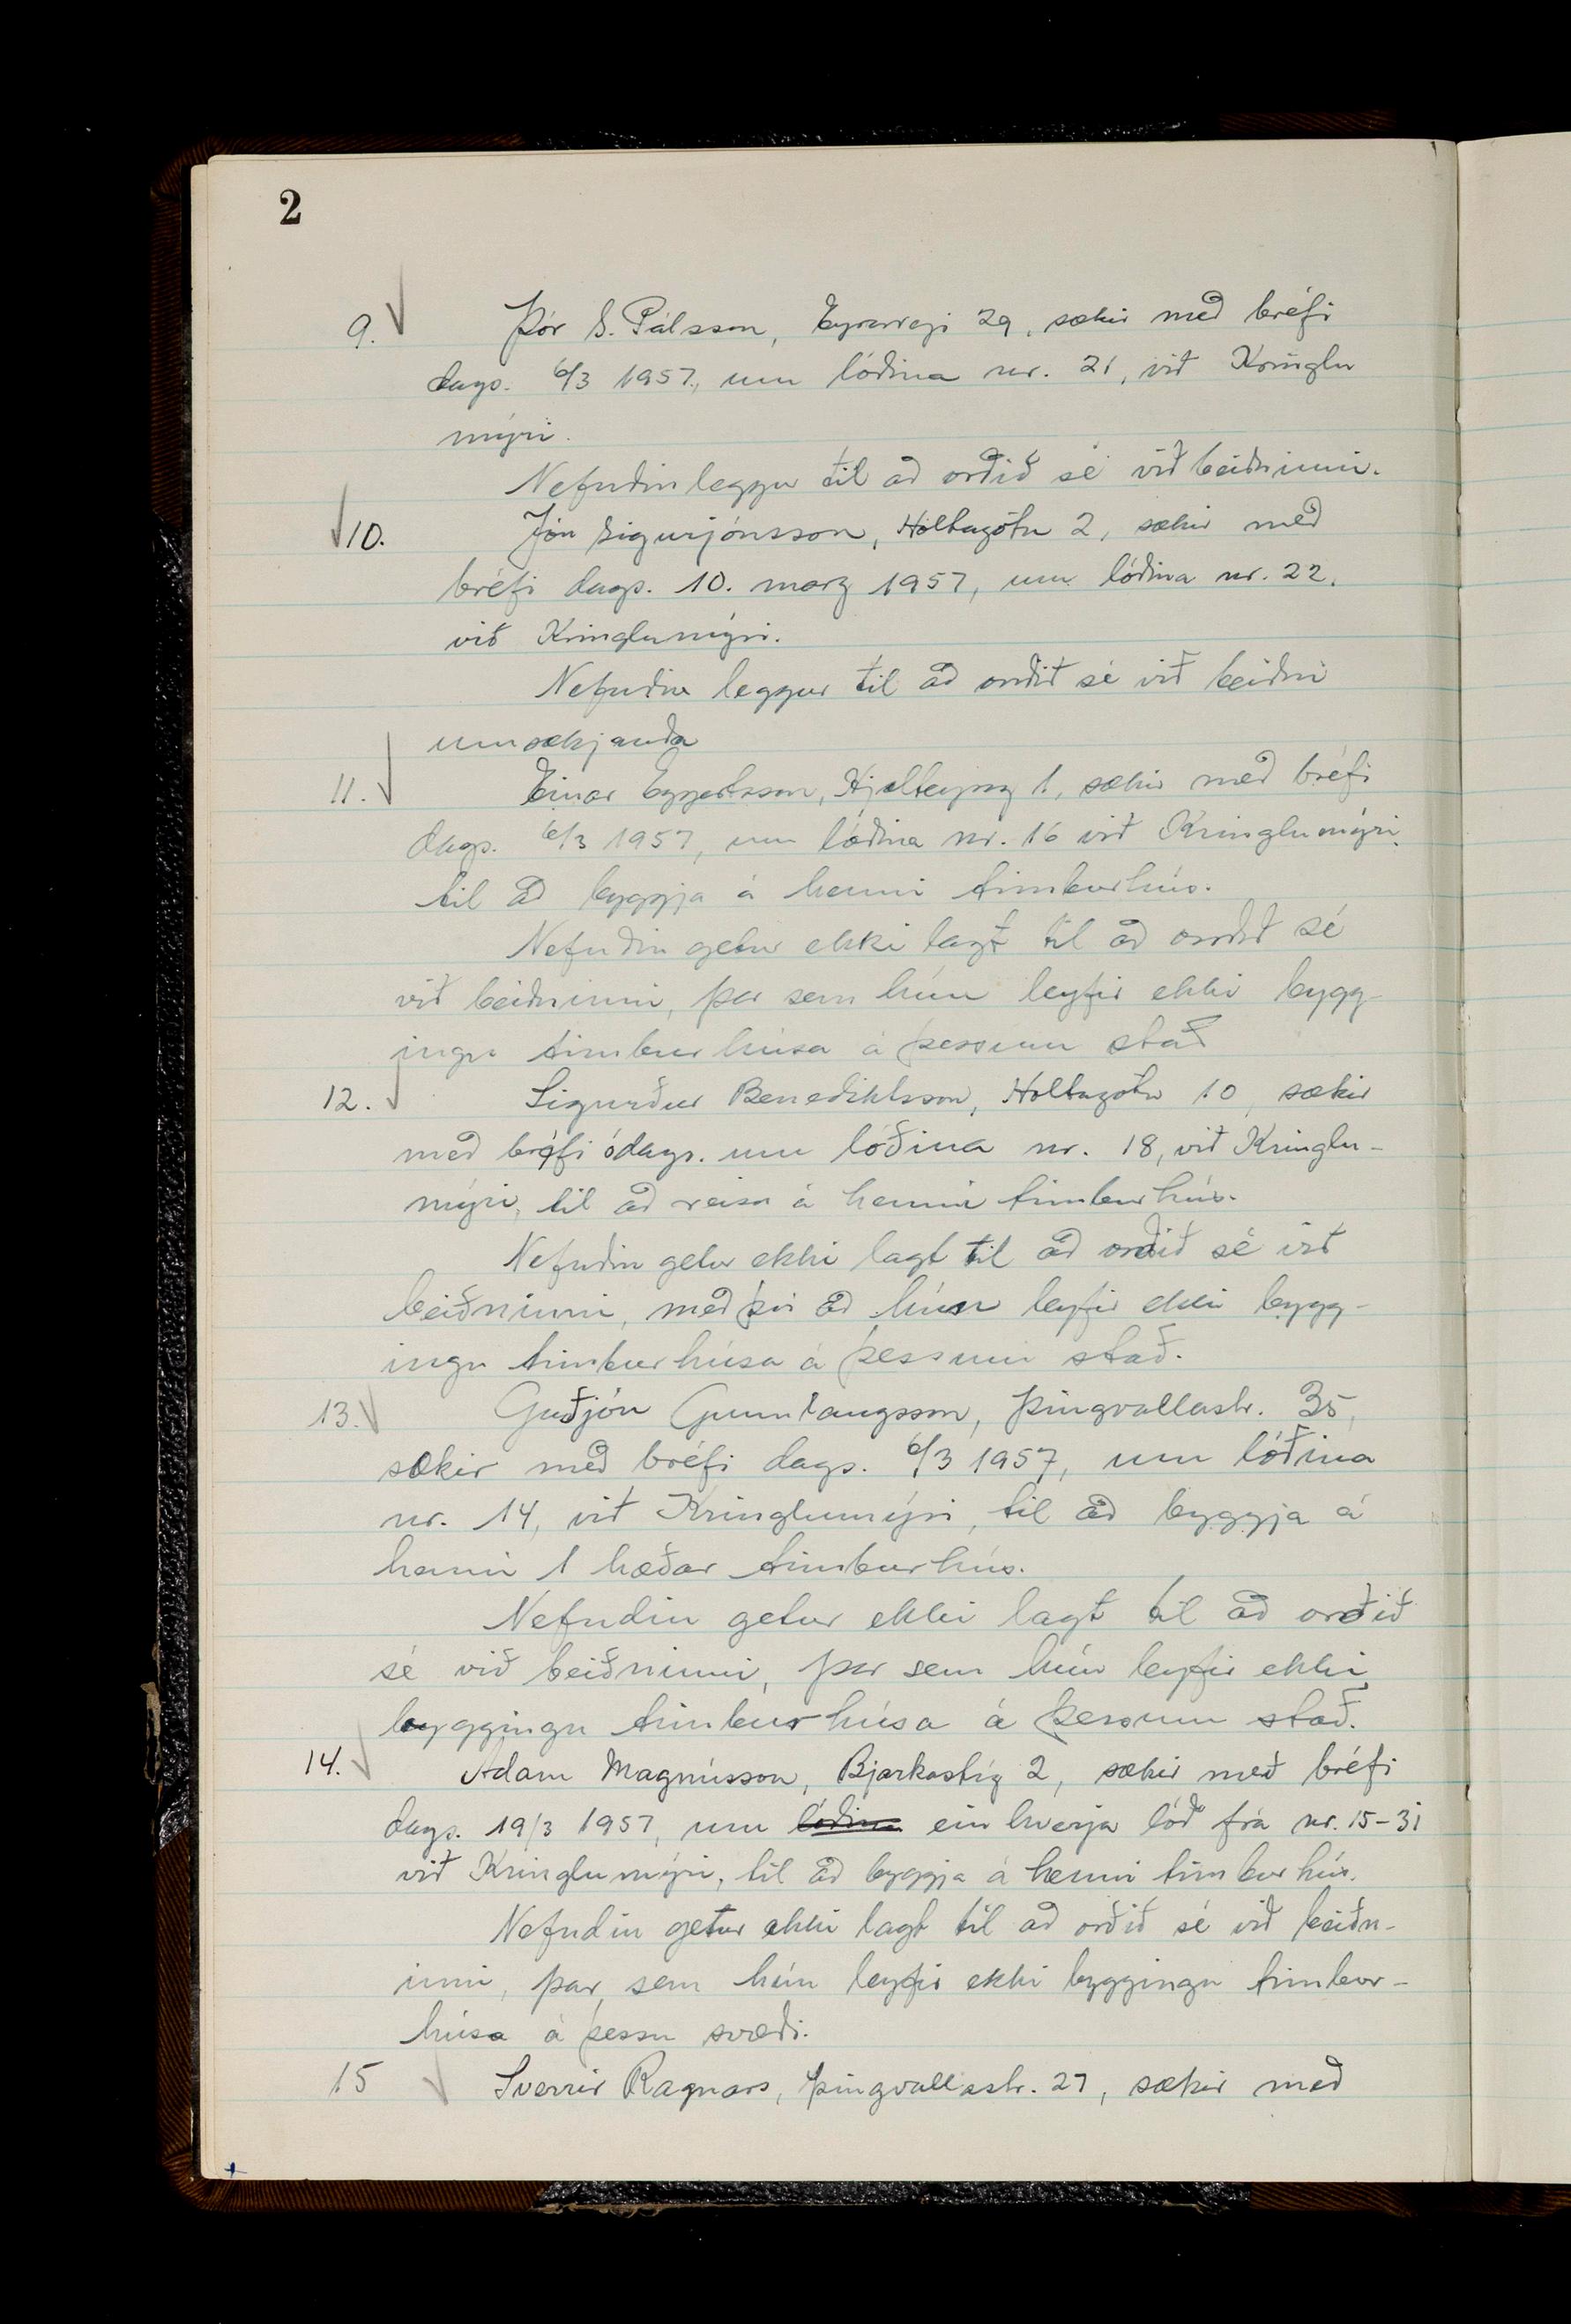 2
9. Þór S. Pálsson, Eyrarvegi 29, sækir með bréfi
dags. 6/3 1957, um lóðina nr. 21, við Kringlu
mýri.
Nefndin leggur til að orðið sé við beiðninni.
10. Jón Sigurjónsson, Holtagötu 2, sækir með
bréfi dags. 10. marz 1957, um lóðina nr. 22,
við Kringlumýri.
Nefndin leggur til að orðið sé við beiðni
umsækjanda
11. Einar Eggertsson, Hjalteyrg 1, sækir með bréfi
dags. 6/3 1957, um lóðina nr. 16 við Kringlumýri,
til að byggja á henni timburhús.
Nefndin getur ekki lagt til að orðið sé
við beiðninni, þar sem hún leyfir ekki bygg-
ingu timburhúsa á þessum stað
12. Sigurður Benediktsson, Holtagötu 10, sækir
með bréfi ódags. um lóðina nr. 18, við Kringlu-
mýri, til að reisa á henni timburhús.
Nefndin getur ekki lagt til að orðið sé við
beiðninni, með því að hún leyfir ekki bygg-
ingu timburhúsa á þessum stað.
13. Guðjón Gunnlaugsson, Þingvallastr. 35,
sækir með bréfi dags. 6/3 1957, um lóðina
nr. 14, við Kringlumýri, til að byggja á
henni 1 hæðar timburhús.
Nefndin getur ekki lagt til að orðið
sé við beiðninni, þar sem hún leyfir ekki
byggingu timburhúsa á þessum stað.
14. Adam Magnússon, Bjarkastíg 2, sækir með bréfi
dags. 19/3 1957, um lóðina einhverja lóð frá nr. 15-31
við Kringlumýri, til að byggja á henni timburhús.
Nefndin getur ekki lagt til að orðið sé við beiðn-
inni, þar sem hún leyfir ekki byggingu timbur-
húsa á þessu svæði.
15 Sverrir Ragnars, Þingvallastr. 27, sækir með